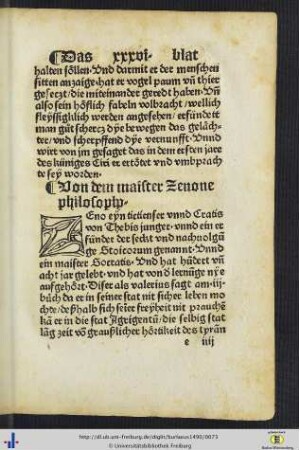 Das xxxvi· blat
halten söllen· Vnd darmit er der menschen
sitten anzaige· hat er vogel paum vñ thier
gesetzt/ die miteinander geredt haben· Vñ
also sein höflich fabeln volbracht/ wellich
fleyssigklich werden angesehen/ erfindet
man gůt schertz dye bewegen das geläch⸗
ter/ vnd scherpffend dye vernunfft· Vnnd
wirt von jm gesaget das in dem ersten jare
des küniges Ciri er ertötet vnd vmbprach
te sey worden·
Von dem maister Zenone
philosopho·
ZEno eyn tietienser vnnd Cratis
von Thebis junger· vnnd ein er
fünder der seckt vnd nachuolgũ
ge Stoicorum genannt· Vnnd
ein maister Socratis· Vnd hat hũdert vñ
acht jar gelebt· vnd hat von d̃ lernũge nye
aufgehört· Diser als valerius sagt am· iij·
bůch da er in seiner stat nit sicher leben mo
chte/ deßhalb sich seiner freyheit nit prauchẽ
kã er in die stat Agrigentũ/ die selbig stat
lãg zeit võ graußlicher hörtikeit des tyrãn
e iij
http://dl.ub.uni-freiburg.de/diglit/burlaeus1490/0073
© Universitätsbibliothek Freiburg